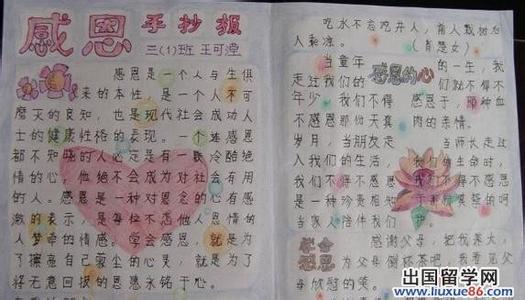 感恩 手抄报
三(1)班 王可滢
感恩是一个人与生俱
来的本性,是一个人不可
磨灭的良知,也是现代社会成功人
士的健康性格的表现。一个连感恩
都不知晓的人必定是有一颗冷酷绝
情的心,他绝不会成为对社会有用
的人。感恩是一种对恩惠的心有感
激的表示,是每位不忘他人恩情的
人梦牵的情感。学会感恩,就是为
了擦亮自己蒙尘的心灵,就是为了
将无意回报的恩惠永铭于心。
吃水不忘吃井人,前人栽树后
人乘凉。
当童年 的一生,我
走过我们的 感恩的心 们就不得不
年少 我们不得 感恩于,那种血
不感恩那份天真 肉的亲情。
岁月,当朋友走 当师长走过
入我们的生活, 我们的生命时,
我们不得不感恩 我们不得不感恩
是一种珍贵相
当家人陪伴我们
感谢父母,把我养大,
学会感恩 为父母倒杯茶吧,我看到
父母欣慰的笑。
出国留学网
www.liuxue86.com